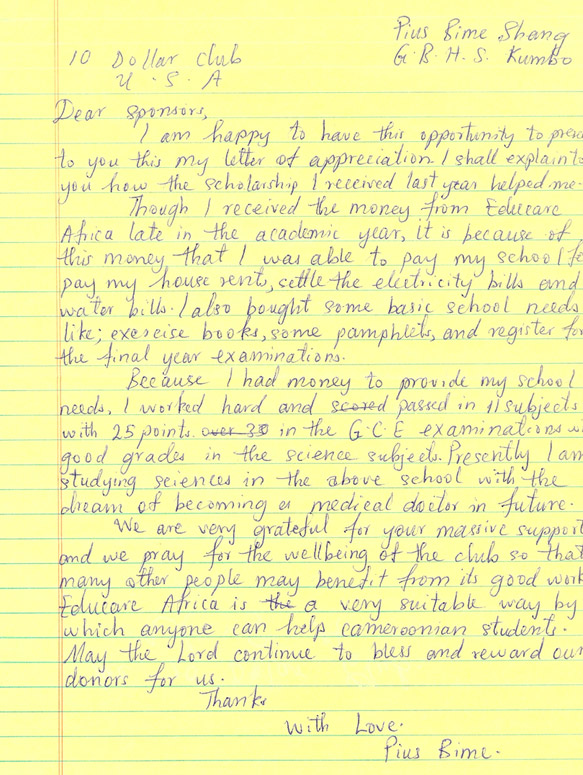 Pius Bime Shang
10 Dollar club G.B.H.S. Kumbo
U.S.A
Dear sponsors,
I am happy to have this opportunity to prese
to you this my letter of appreciation. I shall explain to
you how the scholarship I received last year helped me.
Though I received the money from Educare
Africa late in the academic year, it is because of
this money that I was able to pay my school fe
pay my house rents, settle the electricity bills and
water bills. I also bought some basic school needs
like; exercise books, some pamphlets, and register for
the final year examinations.
Because I had money to provide my school
needs, I worked hard and scored passed in 11 subjects
with 25 points. over 33 in the G.C.E examinations wi
good grades in the science subjects. Presently I am
studying sciences in the above school with the
dream of becoming a medical doctor in future.
We are very grateful for your massive support
and we pray for the wellbeing of the club so that
many other people may benefit from its good work
Educare Africa is the a very suitable way by
which anyone can help cameroonian students.
May the Lord continue to bless and reward our
donors for us.
Thanks
With Love.
Pius Bime.